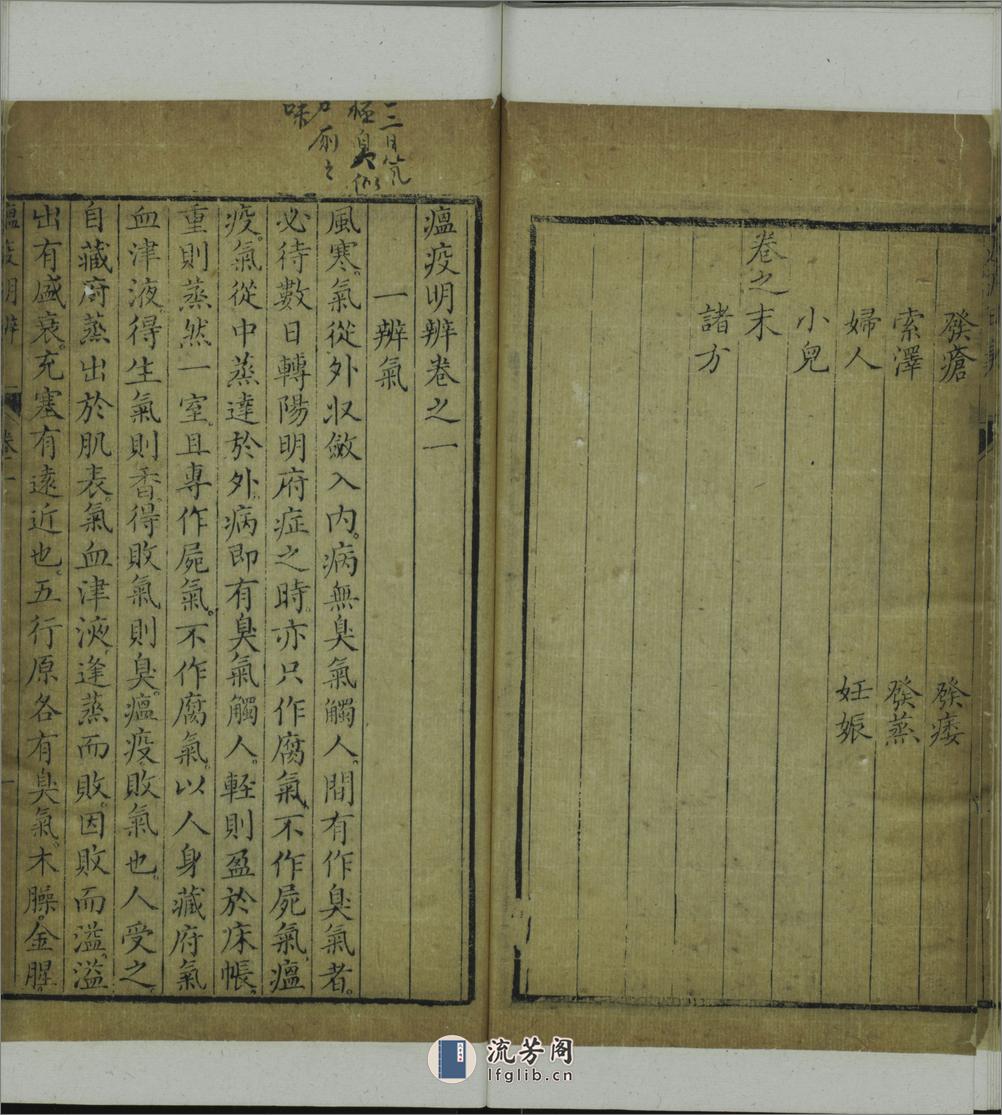 發瘡
發痿
索澤
發蒸
婦人
妊娠
小兒
卷之末
諸方
三日
極臭似
廁之
味
瘟疫明辨卷之一
一辨氣
風寒。氣從外收斂入內。病無臭氣觸人。間有作臭氣者。
必待數日轉陽明府症之時。亦只作腐氣。不作屍氣。瘟
疫。氣從中蒸達於外。病即有臭氣觸人。輕則盈於床帳。
重則蒸然一室。且專作屍氣。不作腐氣。以人身藏府氣
血津液。得生氣則香。得敗氣則臭。瘟疫敗氣也。人受之。
自藏府蒸出於肌表。氣血津液。逢蒸而敗。因敗而溢。溢
出有盛衰。充塞有遠近也。五行原各有臭氣。木臊。金腥。
瘟疫明辨
卷一
一
流芳阁
lfglib.cn